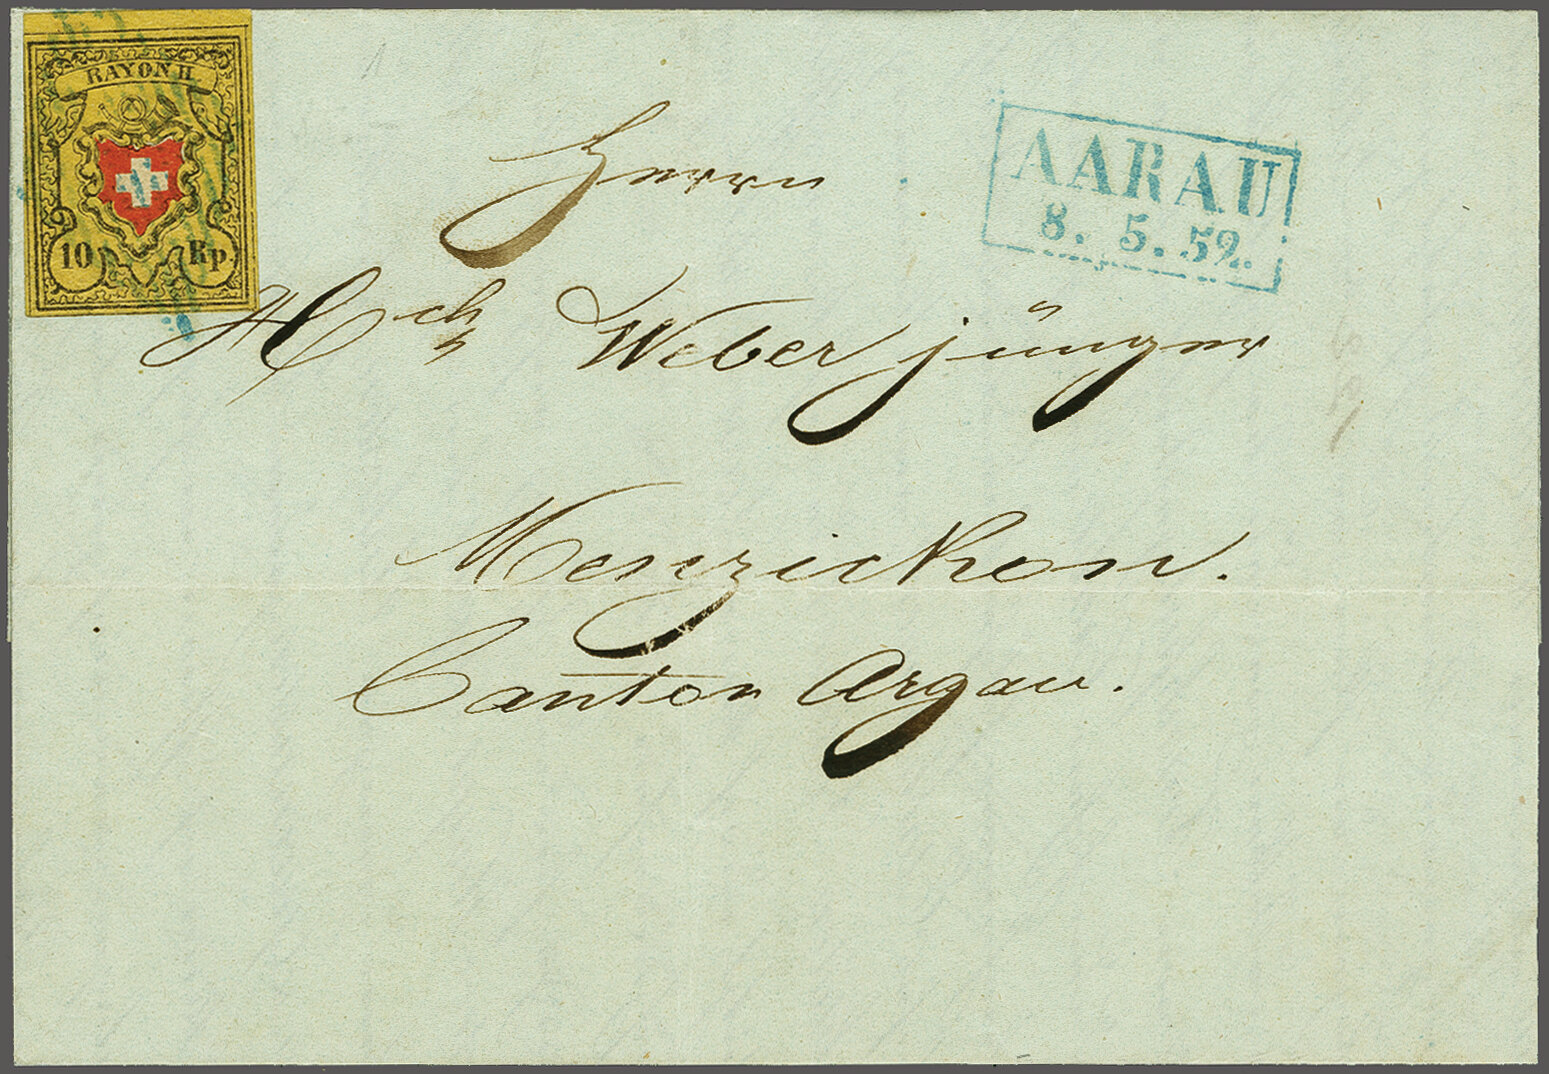 RAYON II
10 Rp
AARAU
8. 5. 52.
Herrn
Weber jünger
Menzickon.
Canton Argau.